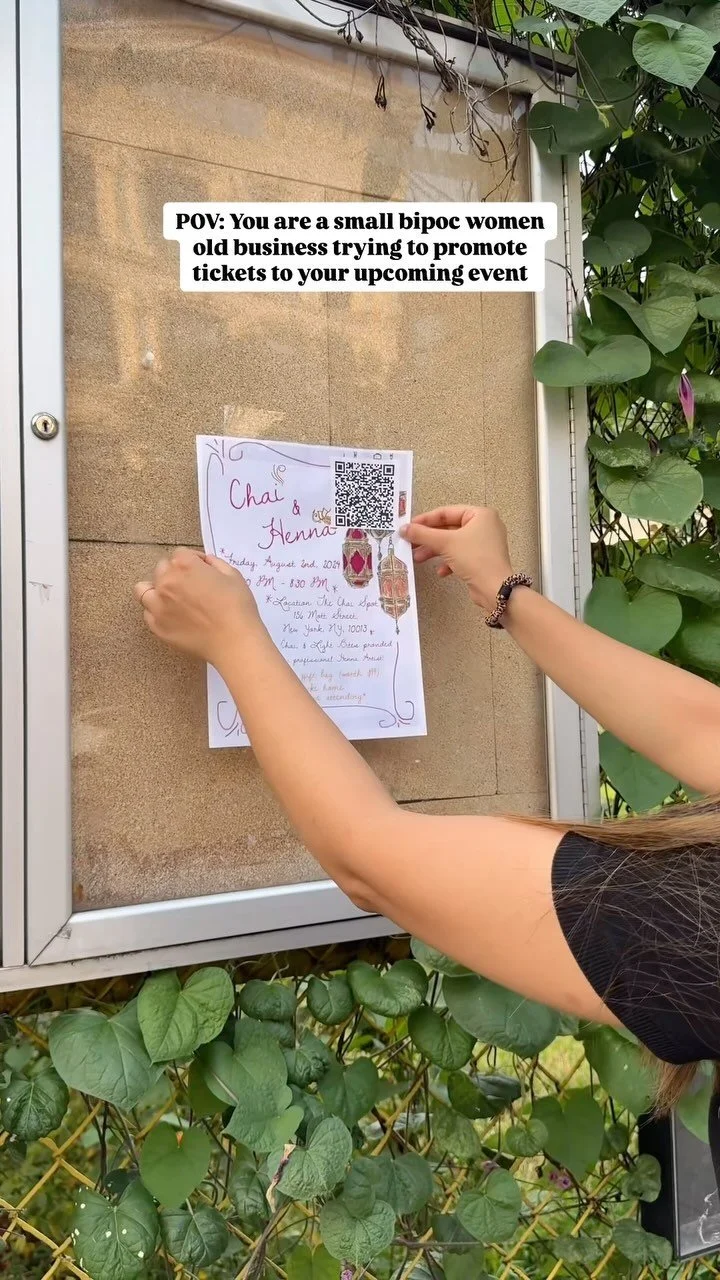 POV: You are a small bipoc women
old business trying to promote
tickets to your upcoming event
Chai
&
Henna
*Friday, August 2nd, 2024
PM - 8:30 PM *
*Location: The Chai Spot
156 Mott Street,
New York, NY, 10013 *
Chai & Light Bites provided
professional Henna Artist
gift bag (worth
home